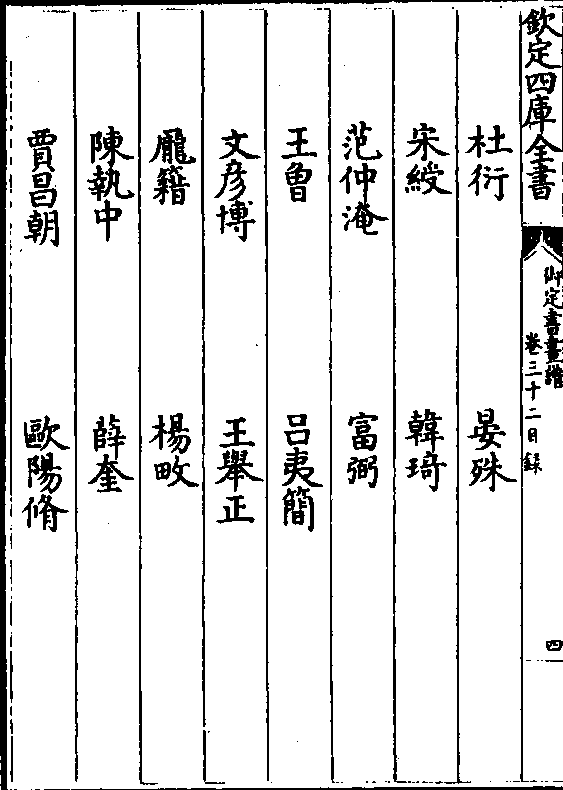 欽定四庫全書
御定書畫譜
卷三十二目録
四
杜衍 晏殊
宋綬 韓琦
范仲淹 富弼
王曾 吕夷簡
文彦博 王舉正
龎籍 楊畋
陳執中 薛奎
賈昌朝 歐陽脩